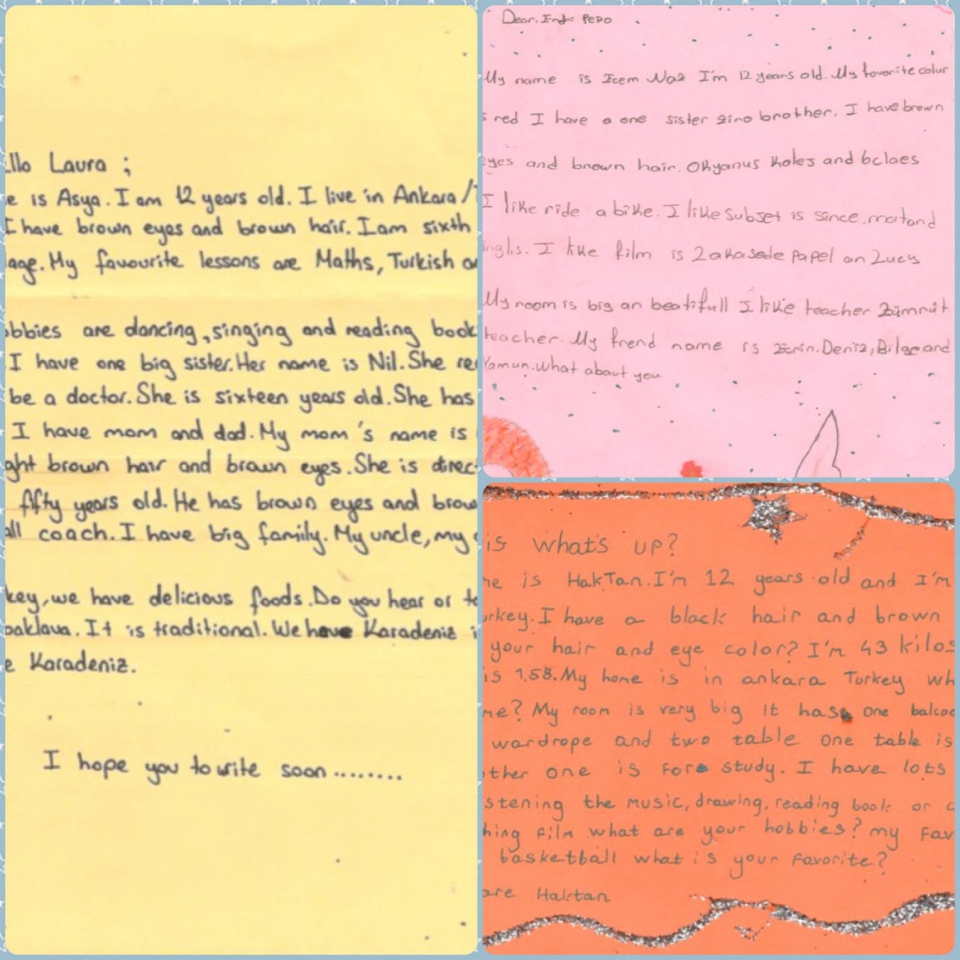 llo Laura ;
e is Asya. I am 12 years old. I live in Ankara /
I have brown eyes and brown hair. I am sixth
age. My favourite lessons are Maths, Turkish a
obbies are dancing, singing and reading book
I have one big sister. Her name is Nil. She re
be a doctor. She is sixteen years old. She has
I have mom and dad. My mom's name is
ght brown hair and brown eyes. She is direc
fifty years old. He has brown eyes and brow
all coach. I have big family. My uncle, my
key, we have delicious foods. Do you hear or t
baklava. It is traditional. We have Karadeniz i
e Karadeniz.
I hope you to write soon ........
Dear. PEPO
My name is I'm 12 years old. My favorite colur
s red I have a one sister brother. I have brown
eyes and brown hair. Okyanus koles and
I like ride a bike. I like subjet is since, mat and
inglis. I like film is papel an Lucy
My room is big an beatifull I like teacher Zümrüt
teacher. My frend name is Deniz, Bilge and
Yamun. What about you
is what's up?
me is HakTan. I'm 12 years old and I'm
urkey. I have a black hair and brown
your hair and eye color? I'm 43 kilos
is 1,58. My home is in ankara Turkey wh
me? My room is very big It has one balco
wardrope and two table one table is
ther one is for study. I have lots
stening the music, drawing, reading book or c
hing film what are your hobbies? my fav
basketball what is your favorite?
are Haktan